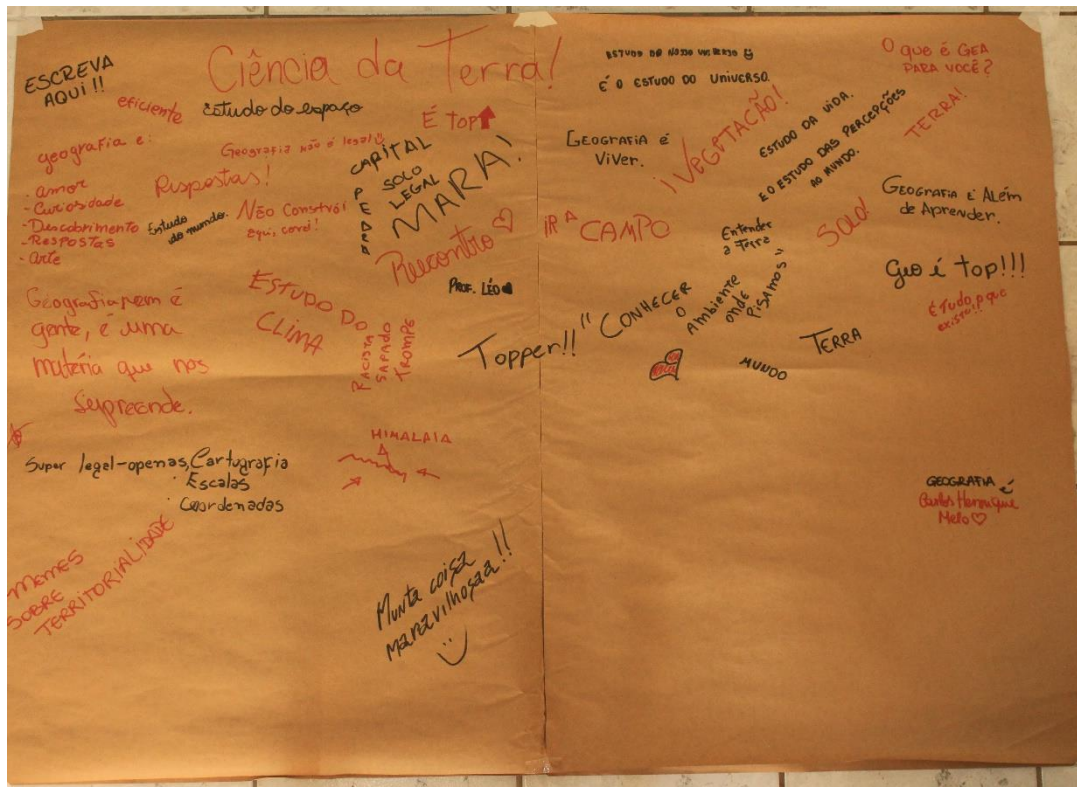 ESCREVA
AQUI !!
Ciência da Terra!
eficiente
Estudo do espaço
É TOP
geografia e:
- amor
- Curiosidade
- Descobrimento
- RESPOSTAS
- arte
Geografia não é legal
Respostas!
Estudo
do mundo.
Não Constrói
aqui, corre!
CAPITAL
PEDRA
SOLO
LEGAL
MARA!
Reencontro
PROF. LÉO
Geografia nem é
gente, é uma
matéria que nos
surpreende.
ESTUDO DO
CLIMA
RACISTA
SAFADO
TROMPE
Topper!!
HIMALAIA
Super legal-apenas, Cartografia
Escalas
Coordenadas
MEMES
SOBRE
TERRITORIALIDADE
Munta coisa
maravilhosaa!!
ESTUDO DO NOSSO UNIVERSO
É O ESTUDO DO UNIVERSO.
O QUE É GEA
PARA VOCÊ?
GEOGRAFIA É
VIVER.
¡VEGETAÇÃO!
ESTUDO DA VIDA.
E O ESTUDO DAS PERCEPÇÕES
AO MUNDO.
TERRA!
GEOGRAFIA É ALÉM
de APRENDER.
IR A CAMPO
Entender
a Terra
SOLO!
Geo é top!!!
É TUDO, p que
existo!!
"CONHECER
O
Ambiente
onde
PISAMOS"
MUNDO
TERRA
GEOGRAFIA é
Carlos Henrique
Melo